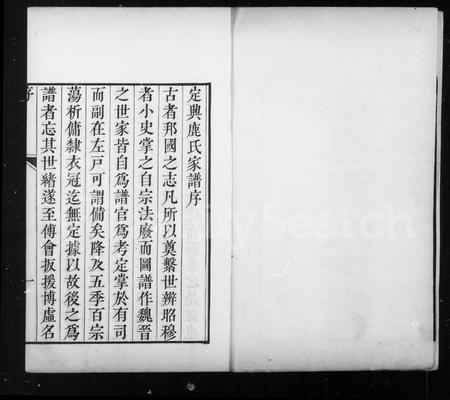 定興鹿氏家譜序
古者邦國之志凡所以奠繫世辨昭穆
者小史掌之自宗法廢而圖譜作魏晉
之世家皆自為譜官為考定掌於有司
而副在左戸可謂備矣降及五季百宗
蕩析傭隸衣冠迄無定據以故後之為
譜者忘其世緒遂至傅會扳援博虛名
序